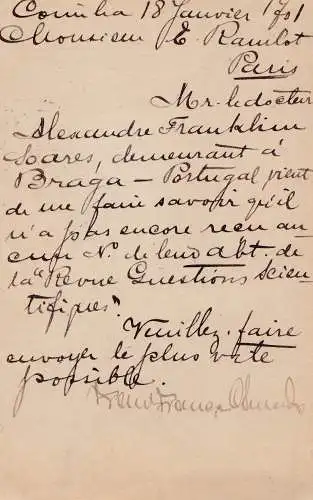 Coimbra 18 Janvier 1901
Monsieur E. Ramlot
Paris
Mr. le docteur
Alexandre Franklim
Soares, demeurant á
Braga — Portugal, vient
de me faire savoir qu'il
n'a pas encore reçu au
cun No. de leur abt. de
la "Revue Questions Scien
tifiques".
Veuillez faire
envoyer le plus vite
possible.
França Amado